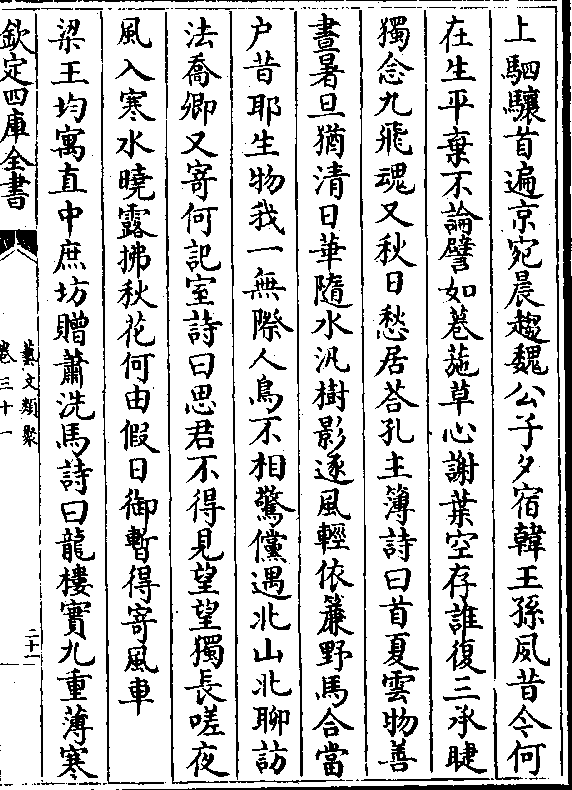 上駟驤首遍京宛晨趨魏公子夕宿韓王孫夙昔今何
在生平棄不論譬如菤葹草心謝葉空存誰復三承睫
獨念九飛魂又秋日愁居荅孔主簿詩曰首夏雲物善
晝暑旦猶清日華隨水汎樹影逐風輕依簾野馬合當
户昔耶生物我一無際人鳥不相驚儻遇北山北聊訪
法喬卿又寄何記室詩曰思君不得見望望獨長嗟夜
風入寒水曉露拂秋花何由假日御暫得寄風車
梁王均寓直中庶坊贈蕭洗馬詩曰龍樓實九重薄寒
欽定四庫全書
藝文類聚
卷三十一
二十一